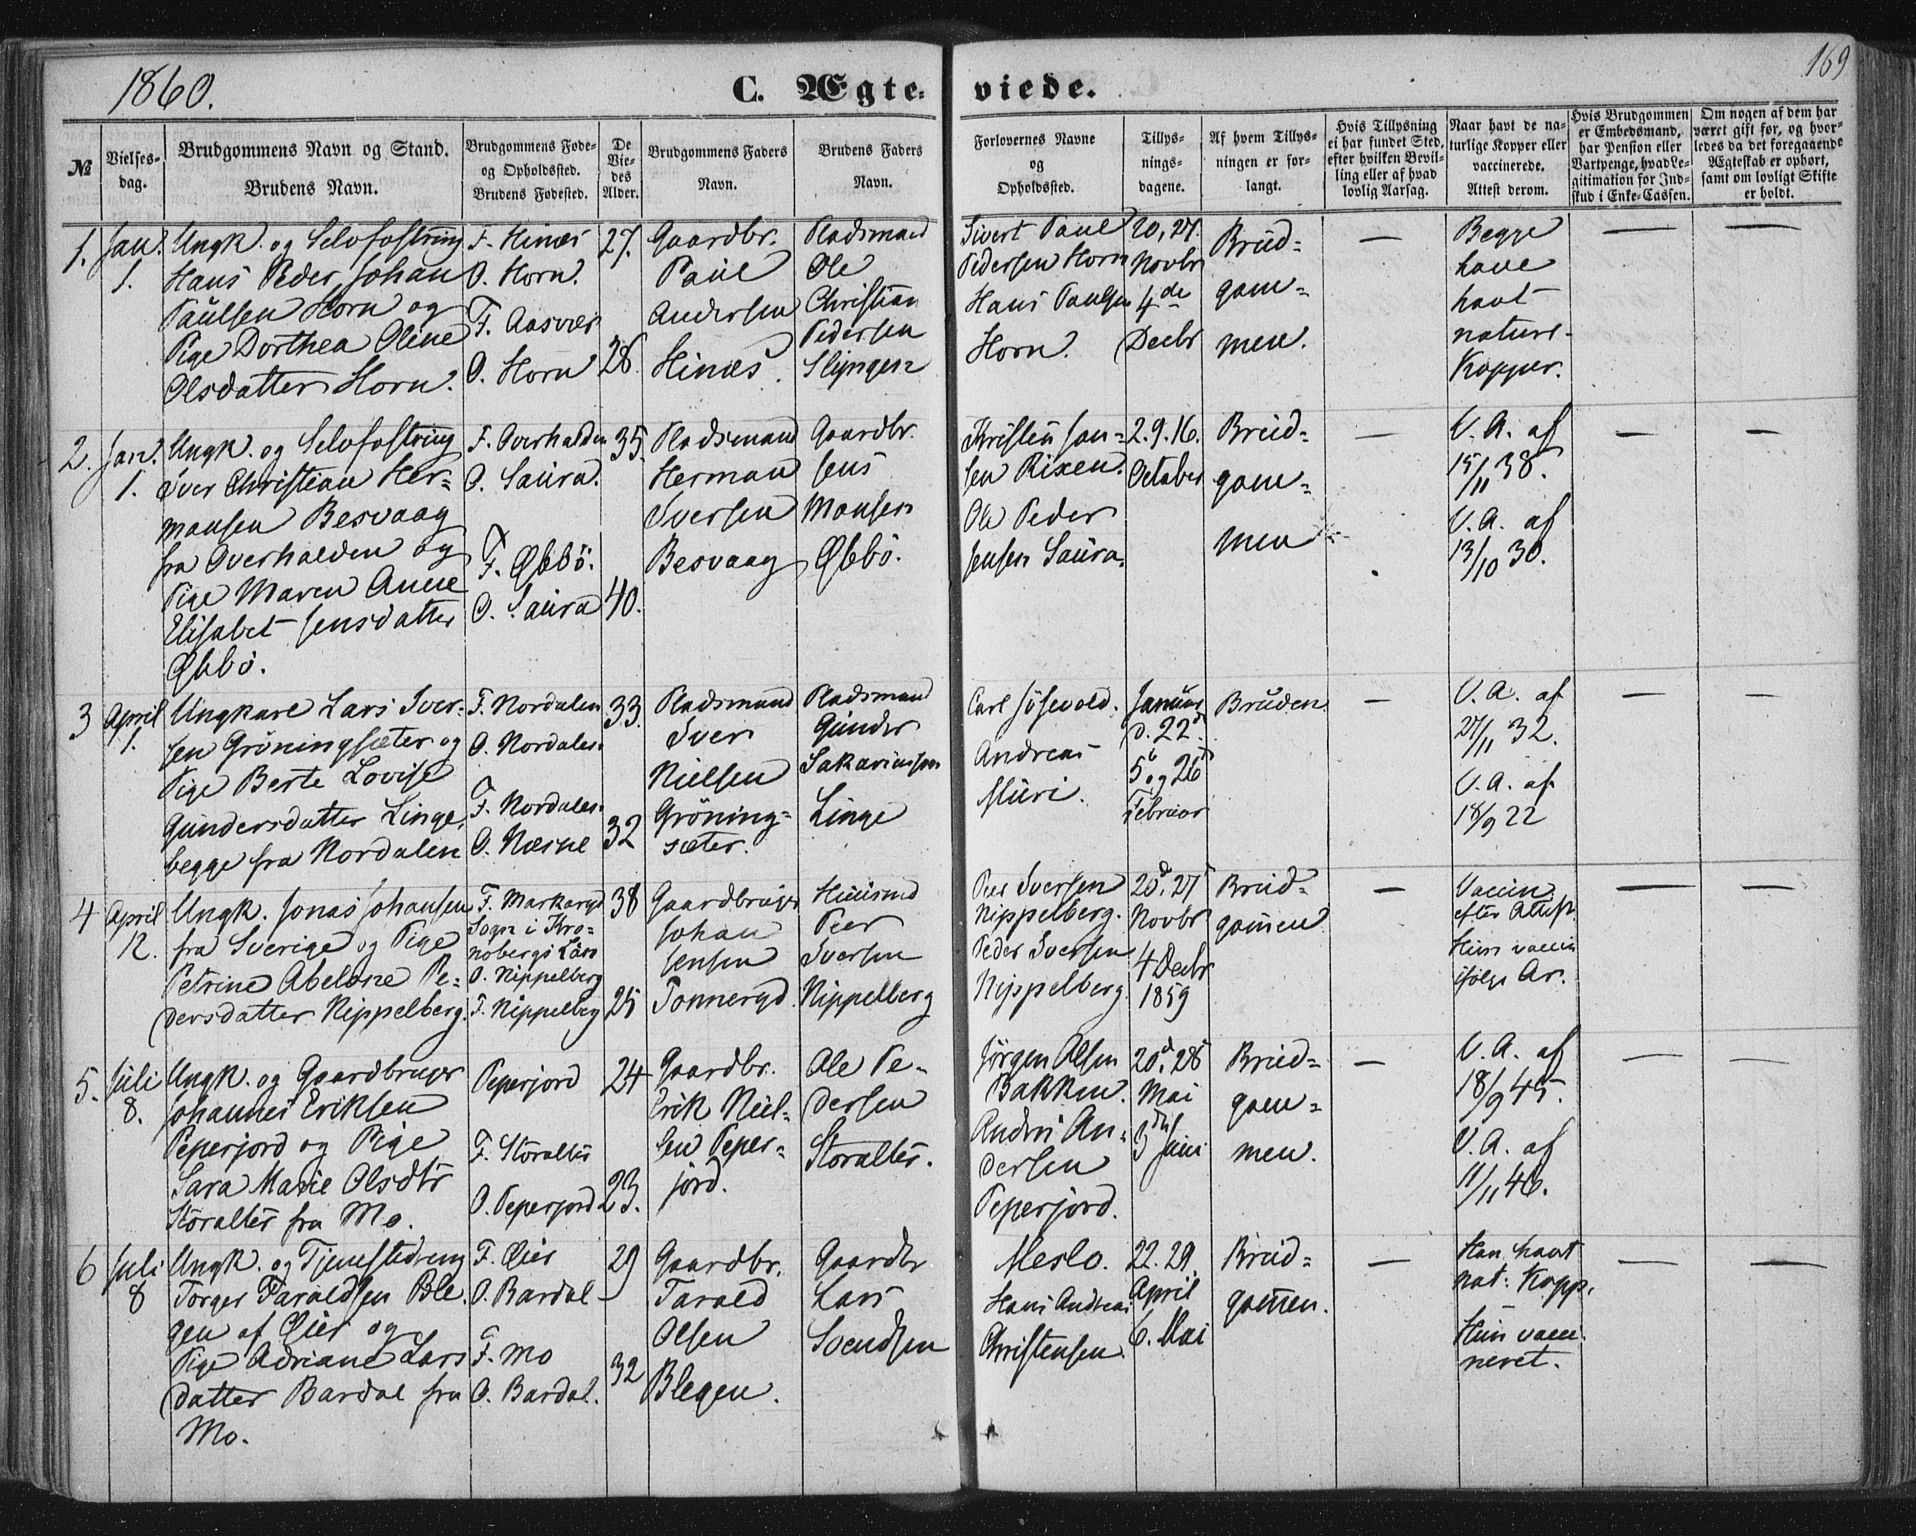 169
1860.
C. Ægte- viede.
№
Vielses-
dag.
Brudgommens Navn og Stand.
Brudens Navn.
Brudgommens Føde-
og Opholdssted.
Brudens Fødested.
De
Vie-
des
Alder.
Brudgommens Faders
Navn.
Brudens Faders
Navn.
Forlovernes Navne
og
Opholdssted.
Tillys-
nings-
dagene.
Af hvem Tillys-
ningen er for-
langt.
Hvis Tillysning
ei har fundet Sted,
efter hvilken Bevil-
ling eller af hvad
lovlig Aarsag.
Naar havt de na-
turlige Kopper eller
vaccinerede.
Attest derom.
Hvis Brudgommen
er Embedsmand,
har Pension eller
Vartpenge, hvad Le-
gitimation for Ind-
skud i Enke-Cassen.
Om nogen af dem har
været gift før, og hvor-
ledes da det foregaaende
Ægteskab er ophørt,
samt om lovligt Skifte
er holdt.
1.
Jan.
1.
Ungk. og Selvfostring
Hans Peder Johan
Paulsen Horn og
Pige Dorthea Oline
Olsdatter Horn.
F. Hinæs
O. Horn.
F. Aasvær
O. Horn
27.
28.
Gaardbr.
Paul
Andersen
Hinæs.
Pladsmand
Ole
Christian
Pedersen
Slyngen
Sivert Paul
Pedersen Horn
Hans Paulsen
Horn.
20, 27
Novbr
4de
Decbr
Brud-
gom-
men.
—
Begge
have
havt
naturl.
Kopper.
—
—
2.
Jan.
1.
Ungk. og Selvfostring
Iver Christian Her-
mansen Besvaag
fra Overhalden og
Pige Maren Anne
Elisabet Jensdatter
Øbbö.
F. Overhalden
O. Saura.
F. Øbbö.
O. Saura
35.
40.
Pladsmand
Herman
Iversen
Besvaag
Gaardbr.
Jens
Monsen
Øbbö.
Kristen Jan-
sen Rixen.
Ole Peder
Jensen Saura.
2. 9. 16.
October
Brud-
gom-
men
—
V. A. af
15/11 38.
V. A. af
13/10 30.
—
—
3
April
1.
Ungkarl Lars Iver-
sen Gröningsæter og
Pige Berte Lovise
Gundersdatter Linge,
begge fra Nordalen
F. Nordalen
O. Nordalen
F. Nordalen
O. Næsne
33.
32
Pladsmand
Iver
Nielsen
Gröning-
sæter.
Pladsmand
Gunder
Sakariassen
Linge
Carl Jösevold.
Andreas
Muri.
Januar
d. 22d
5 og 26
Februar
Bruden
—
V. A. af
27/11 32.
V. A. af
18/9 22
—
—
4
April
12.
Ungk. Jonas Johansen
fra Sverige og Pige
Petrine Abelone Pe-
dersdatter Nippelberg.
F. Markaryd
Sogn i Kro-
nobergs Län
O. Nippelberg
F. Nippelberg
38
25
Gaardbruger
Johan
Jensen
Tonneryd.
Huusmd
Peer
Iversen
Nippelberg
Peer Iversen
Nippelberg.
Peder Iversen
Nippelberg.
20d, 27
Novbr
4 Decbr
1859
Brud-
gommen
—
Vaccin.
efter Attest
Hun vaccin
ifølge Ar.
—
—
5.
Juli
8.
Ungk. og Gaardbruger
Johannes Eriksen
Peperjord og Pige
Sara Marie Olsdtr
Storalter fra Mo.
Peperjord
F. Storalter
O. Peperjord
24
23.
Gaardbr.
Erik Niel-
sen Peper-
jord.
Ole Pe-
dersen
Storalter.
Jørgen Olsen
Bakken.
Andri An-
dersen
Peperjord.
20d, 28
Mai
3die Juni
Brud-
gom-
men.
—
V. A. af
18/9 45.
V. A. af
11/11 46.
—
—
6
Juli
8
Ungk. og Tjenestedreng
Torger Taraldsen Ble-
gen af Øier og
Pige Adriane Lars
datter Bardal fra
Mo.
F. Øier
O. Bardal
F. Mo
O. Bardal.
29
32
Gaardbr.
Tarald
Olsen
Blegen.
Gaardbr
Lars
Svendsen
Meslo.
Hans Andreas
Christensen.
22. 29.
April
6. Mai
Brud-
gommen.
—
Han havt
nat. Kopp.
Hun vacci-
neret.
—
—